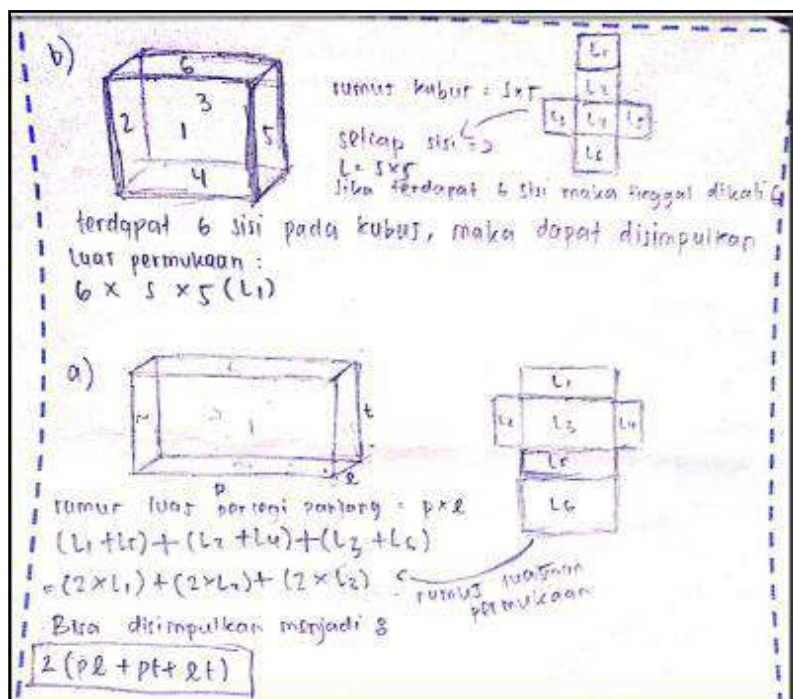 b)
6
3
2
1
5
4
rumus kubus = s x s
setiap sisi =>
L = s x s
Jika terdapat 6 sisi maka tinggal dikali 6
L1
L2
L3 L4 L5
L6
terdapat 6 sisi pada kubus, maka dapat disimpulkan
luas permukaan :
6 x s x s (L1)
a)
1
t
p
l
L1
L2 L3 L4
L5
L6
rumus luas persegi panjang = p x l
(L1 + L5) + (L2 + L4) + (L3 + L6)
= (2 x L1) + (2 x L2) + (2 x L3)
rumus
permukaan
Bisa disimpulkan menjadi :
2 (pl + pt + lt)